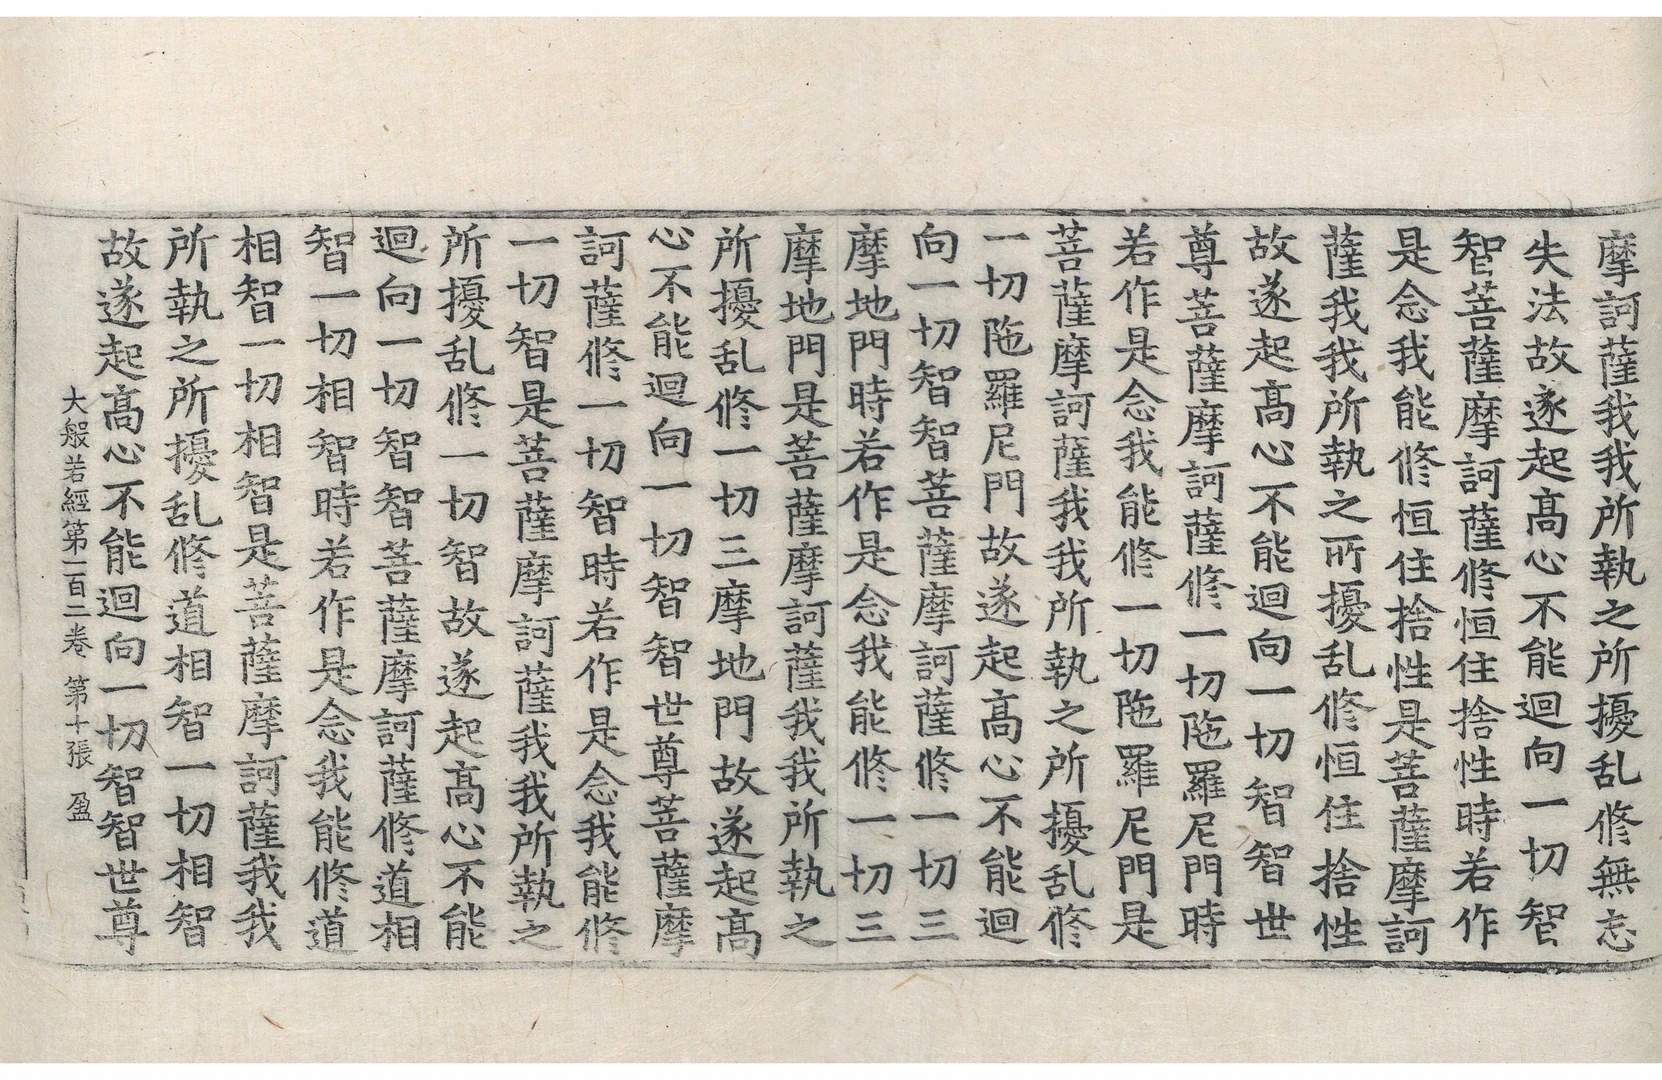 摩訶薩我我所執之所擾乱修無忘
失法故遂起髙心不能迴向一切智
智菩薩摩訶薩修恒住捨性時若作
是念我能修恒住捨性是菩薩摩訶
薩我我所執之所擾乱修恒住捨性
故遂起髙心不能迴向一切智智世
尊菩薩摩訶薩修一切陁羅尼門時
若作是念我能修一切陁羅尼門是
菩薩摩訶薩我我所執之所擾乱修
一切陁羅尼門故遂起髙心不能迴
向一切智智菩薩摩訶薩修一切三
摩地門時若作是念我能修一切三
摩地門是菩薩摩訶薩我我所執之
所擾乱修一切三摩地門故遂起髙
心不能迴向一切智智世尊菩薩摩
訶薩修一切智時若作是念我能修
一切智是菩薩摩訶薩我我所執之
所擾乱修一切智故遂起髙心不能
迴向一切智智菩薩摩訶薩修道相
智一切相智時若作是念我能修道
相智一切相智是菩薩摩訶薩我我
所執之所擾乱修道相智一切相智
故遂起髙心不能迴向一切智智世尊
大般若經第一百二卷 第十張 盈